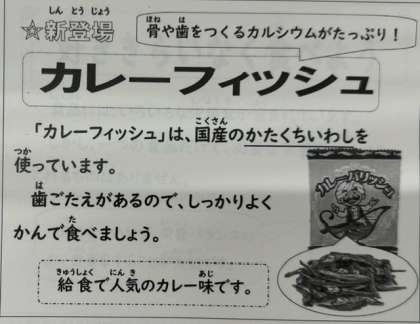 しんとうじょう
☆新登場
ほねは
骨や歯をつくるカルシウムがたっぷり！
カレーフィッシュ
こくさん
「カレーフィッシュ」は、国産のかたくちいわしを
つか
使っています。
は
歯ごたえがあるので、しっかりよく
た
かんで食べましょう。
カレーパリッシュ
きゅうしょくにんきあじ
給食で人気のカレー味です。